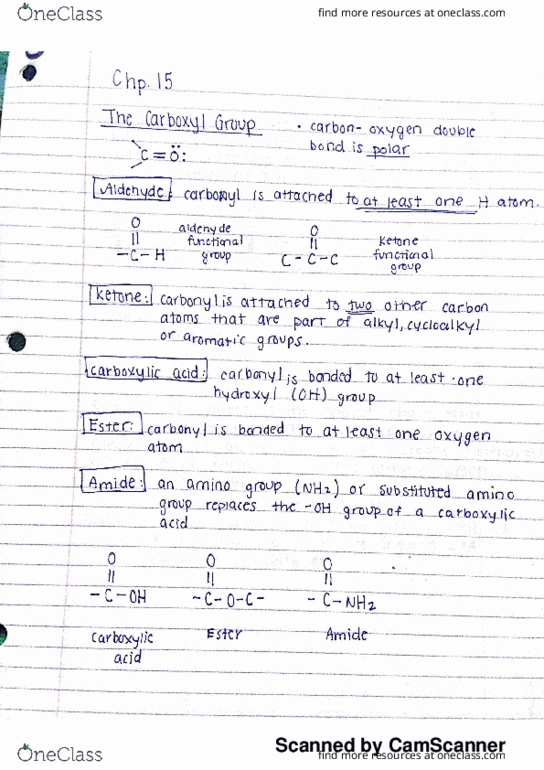 OneClass
find more resources at oneclass.com
Chp. 15
The Carboxyl Group
• carbon-oxygen double
bond is polar
C=O:
Aldehyde: carbonyl is attached to at least one H atom.
O
||
-C-H
aldehyde
functional
group
O
||
C-C-C
Ketone
functional
group
Ketone: carbonyl is attached to two other carbon
atoms that are part of alkyl, cycloalkyl
or aromatic groups.
carboxylic acid: carbonyl is bonded to at least one
hydroxyl (OH) group
Ester: carbonyl is bonded to at least one oxygen
atom
Amide: an amino group (NH2) or substituted amino
group replaces the -OH group of a carboxylic
acid
O
||
-C-OH
O
||
-C-O-C-
O
||
-C-NH2
carboxylic
acid
Ester
Amide
Scanned by CamScanner
OneClass
find more resources at oneclass.com